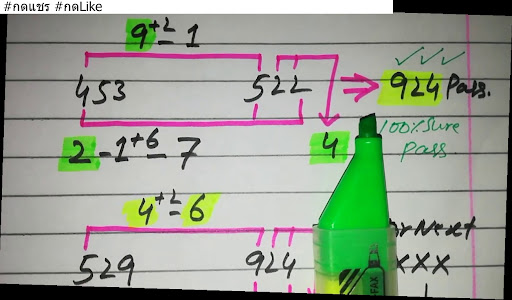 #กดแชร์ #กดLike
9+2-1
453 522 924 Pass.
100% Sure
Pass
2-1+6-7 4
4+2-6
Next
529 924 XXX
FAX